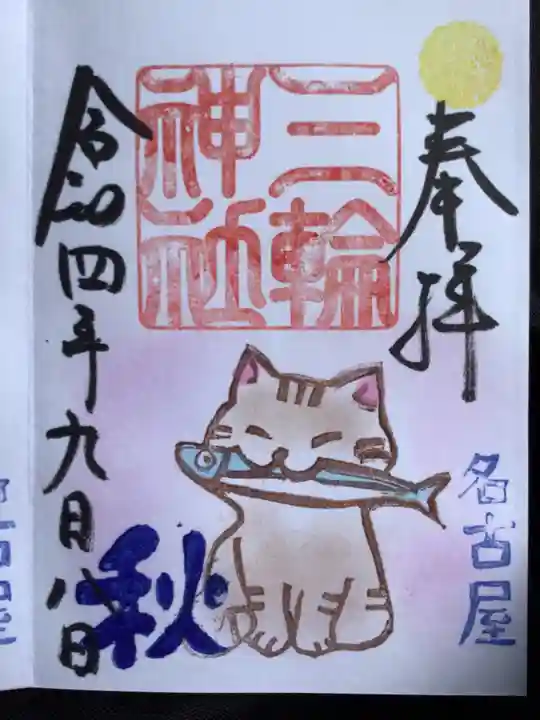 奉拝
名古屋
三輪
神社
秋
令和四年九月八日